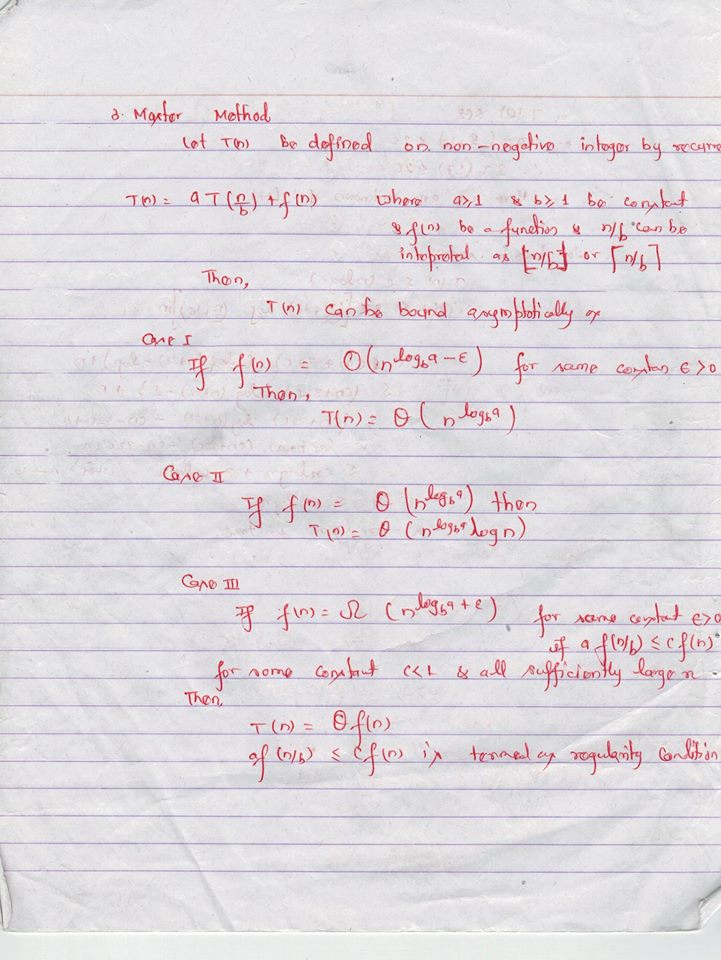 2. Master Method
Let T(n) be defined on non-negative integer by recurre
T(n) = a T(n/b) + f(n) where a≥1 & b≥1 be constant
& f(n) be a function & n/b can be
interpreted as ⌊n/b⌋ or ⌈n/b⌉
Then,
T(n) can be bound asymptotically as
Case I
If f(n) = O(n^{log_b a - ε}) for some constan ε>0
Then,
T(n) = Θ(n^{log_b a})
Case II
If f(n) = Θ(n^{log_b a}) then
T(n) = Θ(n^{log_b a} log n)
Case III
If f(n) = Ω(n^{log_b a + ε}) for some constant ε>0
if a f(n/b) ≤ c f(n)
for some constant c<1 & all sufficiently large n
Then,
T(n) = Θ f(n)
af(n/b) ≤ c f(n) is termed as regularity condition